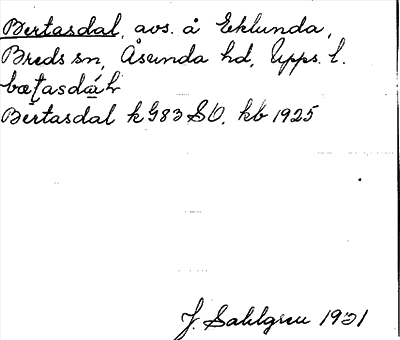 Bertasdal, avs. å Eklunda,
Breds sn, Åsunda hd, Upps. l.
Bertasdal k 983 SO. kb 1925
J. Sahlgren 1931